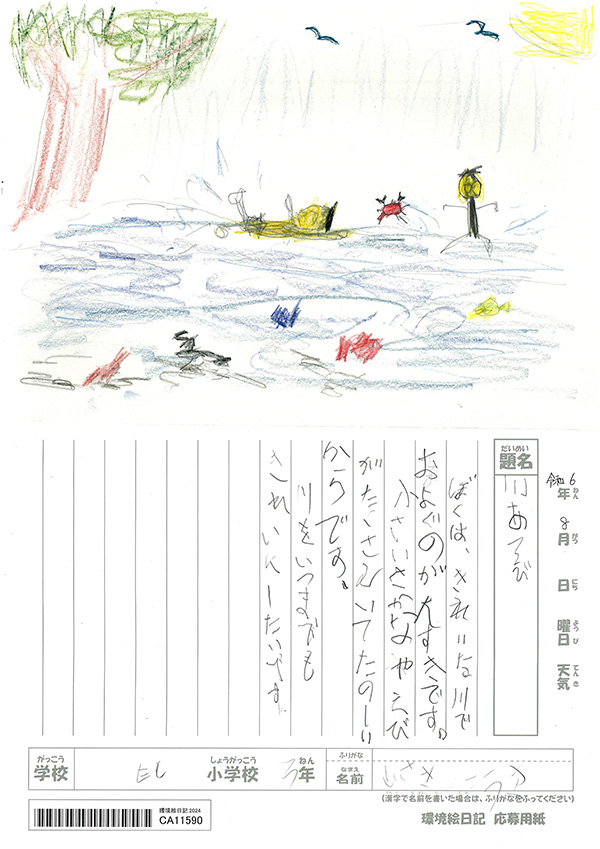 だいめい
題名
川あそび
令和6年 ねん
8月 がつ
日 にち
曜日 ようび
天気 てんき
ぼくは、きれいな川で
およぐのが大すきです。
小さいさかなやえび
がたくさんいてたのしい
からです。
川をいつまでも
きれいにしたいです
がっこう
学校
しょうがっこう
小学校
ねん
年
ふりがな
なまえ
名前
(漢字で名前を書いた場合は、ふりがなをふってください)
環境絵日記 2024
CA11590
環境絵日記 応募用紙